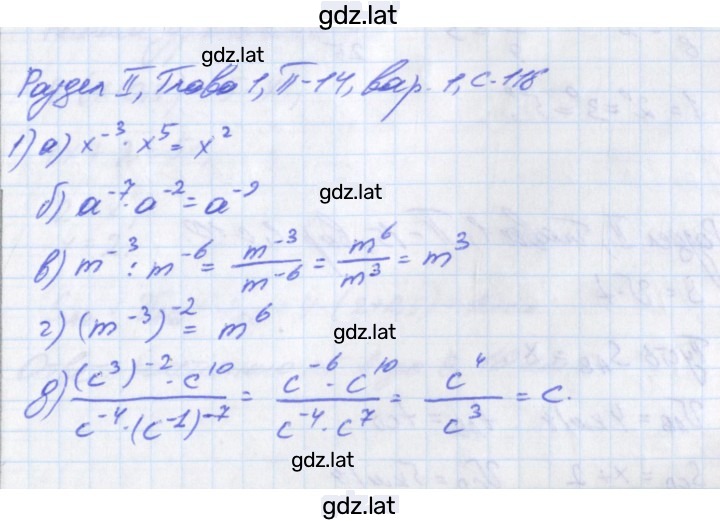 gdz.lat
gdz.lat
Раздел II, Глава 1, П-14, вар. 1, с-118
1) а) x⁻³ · x⁵ = x²
б) a⁻⁷ · a⁻² = a⁻⁹
gdz.lat
в) m⁻³ : m⁻⁶ = m⁻³/m⁻⁶ = m⁶/m³ = m³
г) (m⁻³)⁻² = m⁶
gdz.lat
д) (c³)⁻² · c¹⁰ / c⁻⁴ · (c⁻¹)⁻⁷ = c⁻⁶ · c¹⁰ / c⁻⁴ · c⁷ = c⁴/c³ = c.
gdz.lat
gdz.lat